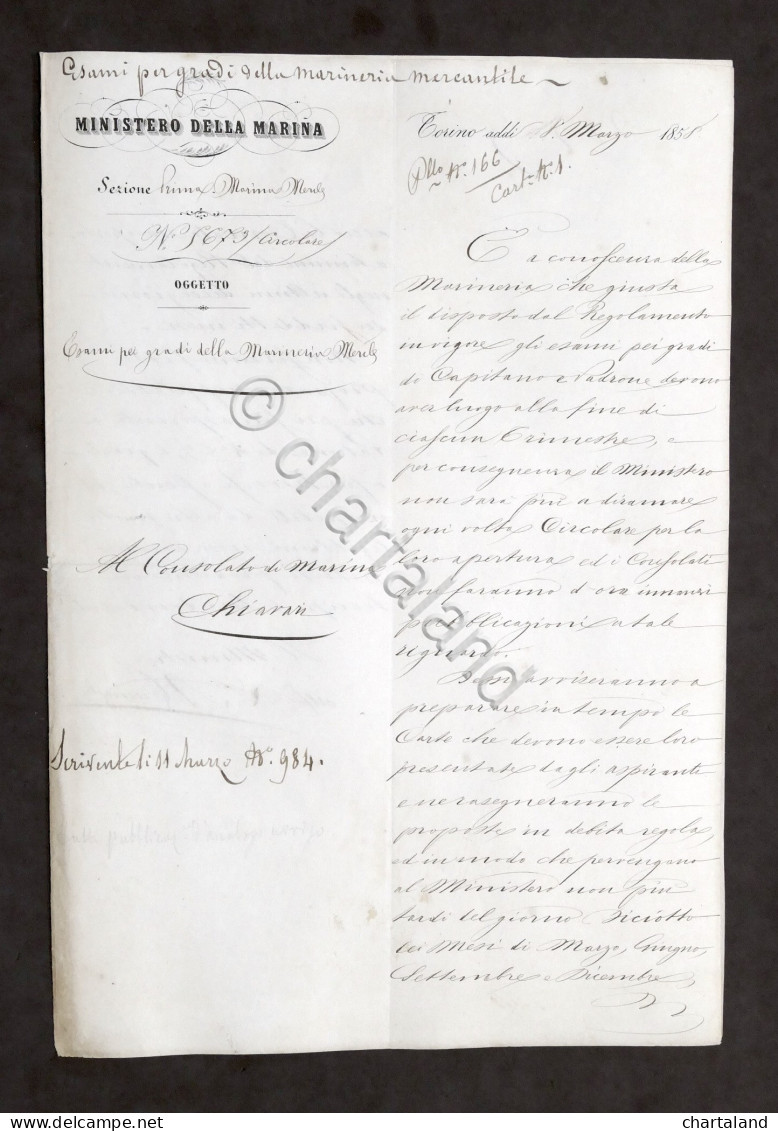 Esami per gradi della marineria mercantile
MINISTERO DELLA MARINA
Sezione Prima Marina Merc.le
N.o 5673/Circolare
OGGETTO
Esami pei gradi della Marineria Merc.le
Al Consolato di Marina
Chiavari
li 11 Marzo N.o 984.
Torino addì Marzo 1858
N.o 166
Cart.a N. 1.
È a conoscenza della
Marineria che giusta
il disposto dal Regolamento
in vigore gli esami pei gradi
di Capitano e Padrone devono
aver luogo alla fine di
ciascun Trimestre, e
per conseguenza il Ministero
non sarà più a diramare
ogni volta Circolare per la
loro apertura ed i Consolati
non faranno d'ora innanzi
pubblicazioni a tale
riguardo.
Bensì avviseranno a
preparare in tempo le
Carte che devono essere loro
presentate dagli aspiranti
e ne rasegneranno le
proposte in debita regola,
ed in modo che pervengano
al Ministero non più
tardi del giorno diciotto
dei Mesi di Marzo, Giugno,
Settembre e Dicembre,
© chartaland
chartaland